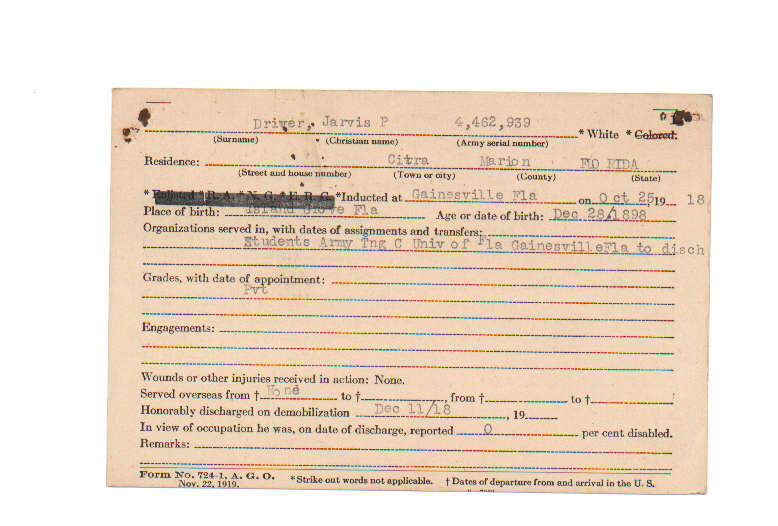 Driver, Jarvis P 4,462,939 * White * Colored.
(Surname) (Christian name) (Army serial number)
Residence: Citra Marion FLO RIDA
(Street and house number) (Town or city) (County) (State)
* Enlisted * R. A. * N. G. * E. R. C. * Inducted at Gainesville Fla on O ct 25, 19 18
Place of birth: Island Grove Fla Age or date of birth: Dec 28/1898
Organizations served in, with dates of assignments and transfers:
Students Army Tng C Univ of Fla GainesvilleFla to disch
Grades, with date of appointment:
Pvt
Engagements:
Wounds or other injuries received in action: None.
Served overseas from † None to †, from † to †
Honorably discharged on demobilization Dec 11/18, 19
In view of occupation he was, on date of discharge, reported 0 per cent disabled.
Remarks:
Form No. 724-1, A. G. O. * Strike out words not applicable. † Dates of departure from and arrival in the U. S.
Nov. 22, 1919.